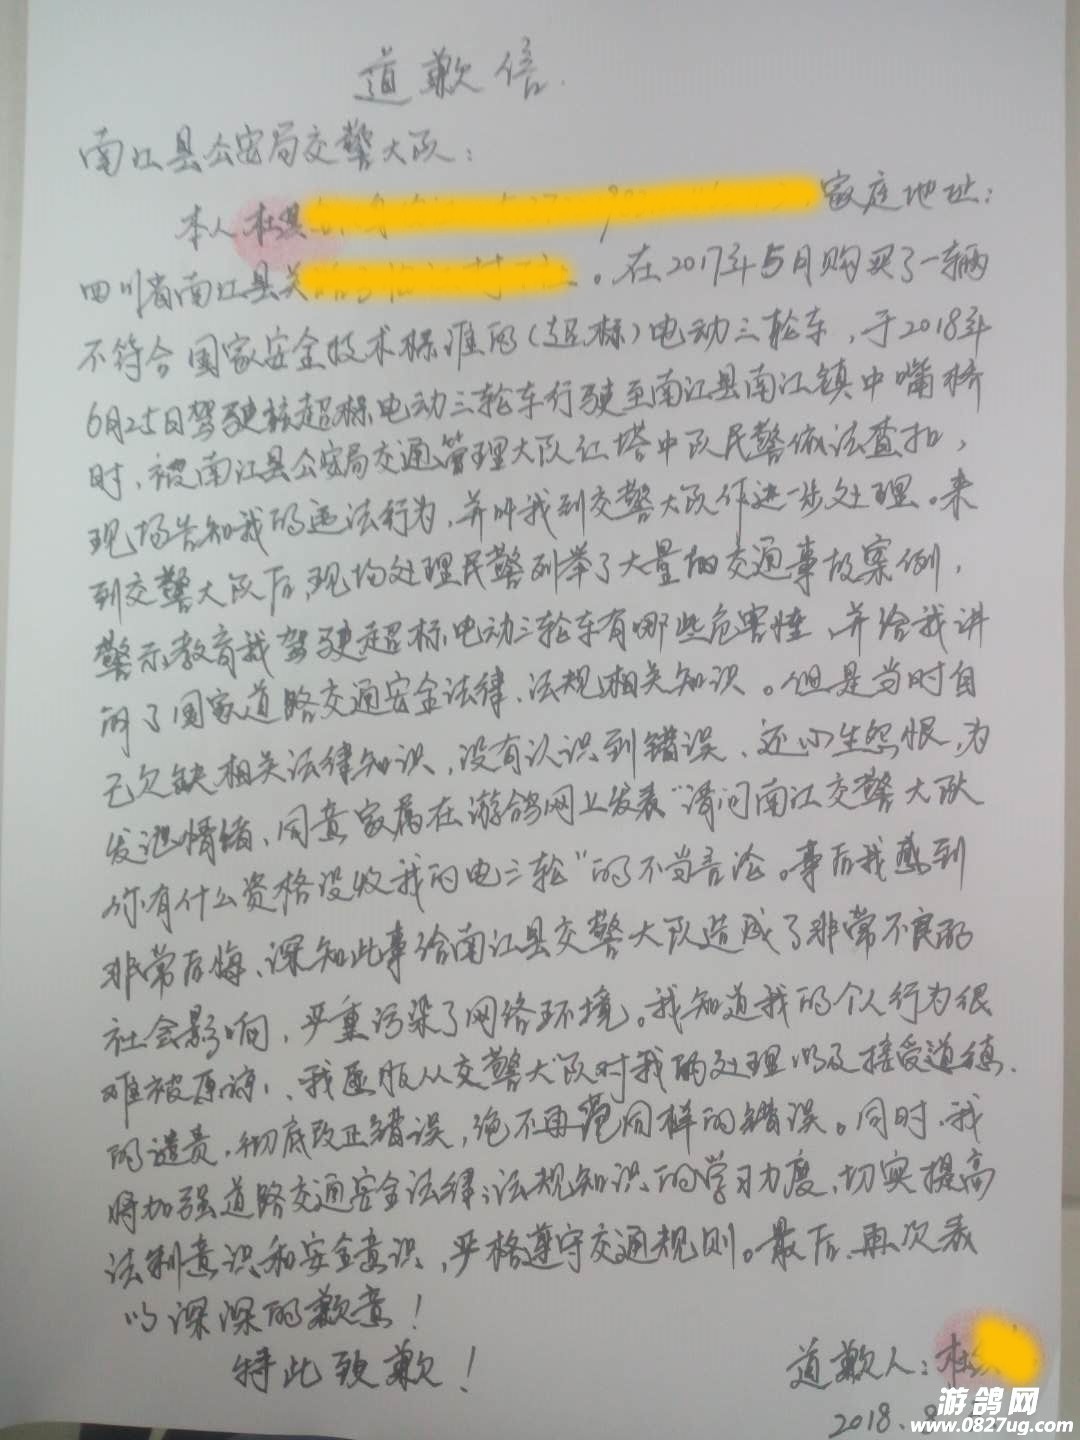 道歉信.
南江县公安局交警大队：
本人杜 家庭地址：
四川省南江县关 。在2017年5月购买了一辆
不符合国家安全技术标准的(超标)电动三轮车，于2018年
6月25日驾驶该超标电动三轮车行驶至南江县南江镇中嘴桥
时，被南江县公安局交通管理大队红塔中队民警依法查扣，
现场告知我的违法行为，并叫我到交警大队作进一步处理。来
到交警大队后，现场处理民警列举了大量的交通事故案例，
警示教育我驾驶超标电动三轮车有哪些危害性，并给我讲
的了国家道路交通安全法律、法规相关知识。但是当时自
己欠缺相关法律知识，没有认识到错误、还心生怨恨，为
发泄情绪、同意家属在游鸽网上发表“请问南江交警大队
你有什么资格没收我的电三轮”的不当言论。事后我感到
非常后悔、深知此事给南江县交警大队造成了非常不良的
社会影响，严重污染了网络环境。我知道我的个人行为很
难被原谅！、我愿服从交警大队对我的处理以及接受道德.
的谴责，彻底改正错误，绝不再犯同样的错误。同时，我
将加强道路交通安全法律、法规知识的学习力度，切实提高
法制意识和安全意识，严格遵守交通规则。最后，再次表
以深深的歉意！
特此致歉！
道歉人：杜
2018.8
游鸽网
www.0827ug.com